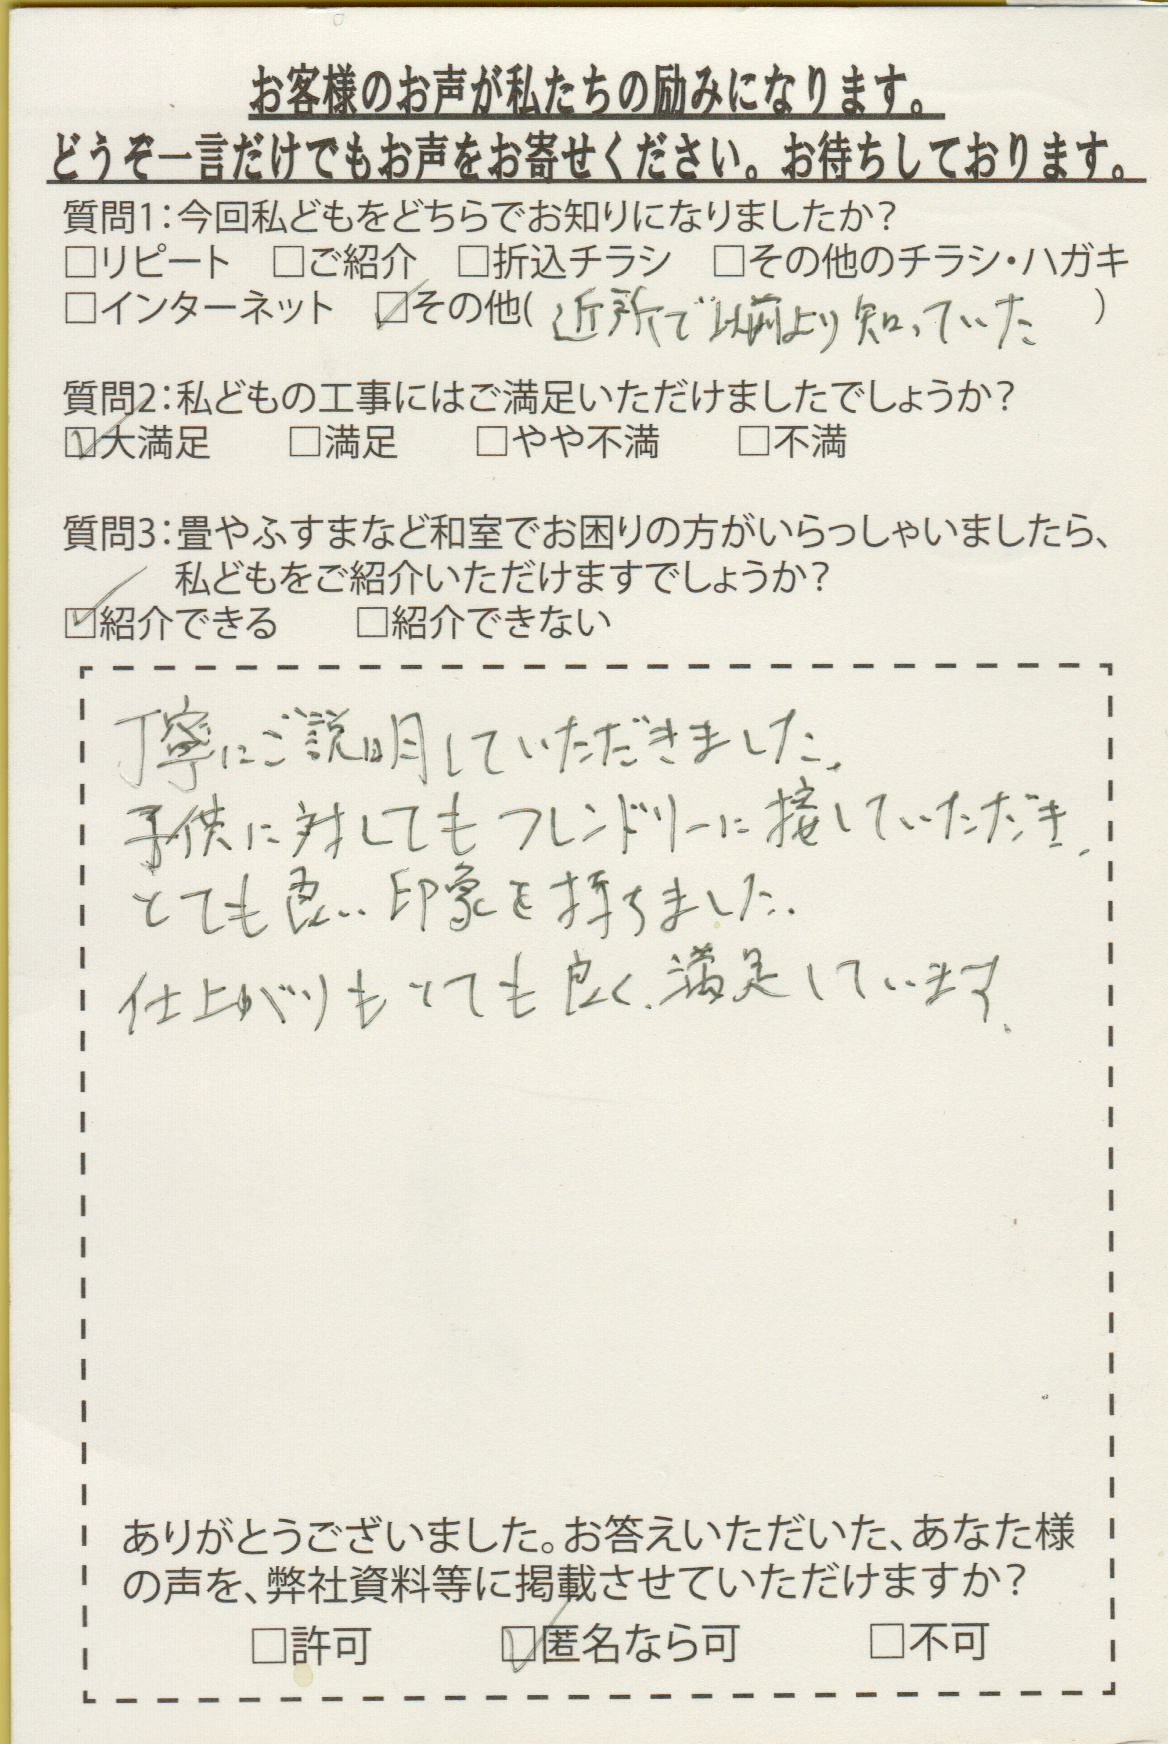 お客様のお声が私たちの励みになります。
どうぞ一言だけでもお声をお寄せください。お待ちしております。
質問1：今回私どもをどちらでお知りになりましたか？
□リピート □ご紹介 □折込チラシ □その他のチラシ・ハガキ
□インターネット ☑その他( 近所で以前より知っていた )
質問2：私どもの工事にはご満足いただけましたでしょうか？
☑大満足 □満足 □やや不満 □不満
質問3：畳やふすまなど和室でお困りの方がいらっしゃいましたら、
私どもをご紹介いただけますでしょうか？
☑紹介できる □紹介できない
丁寧にご説明していただきました。
子供に対してもフレンドリーに接していただき、
とても良い印象を持ちました。
仕上がりもとても良く、満足しています。
ありがとうございました。お答えいただいた、あなた様
の声を、弊社資料等に掲載させていただけますか？
□許可 ☑匿名なら可 □不可